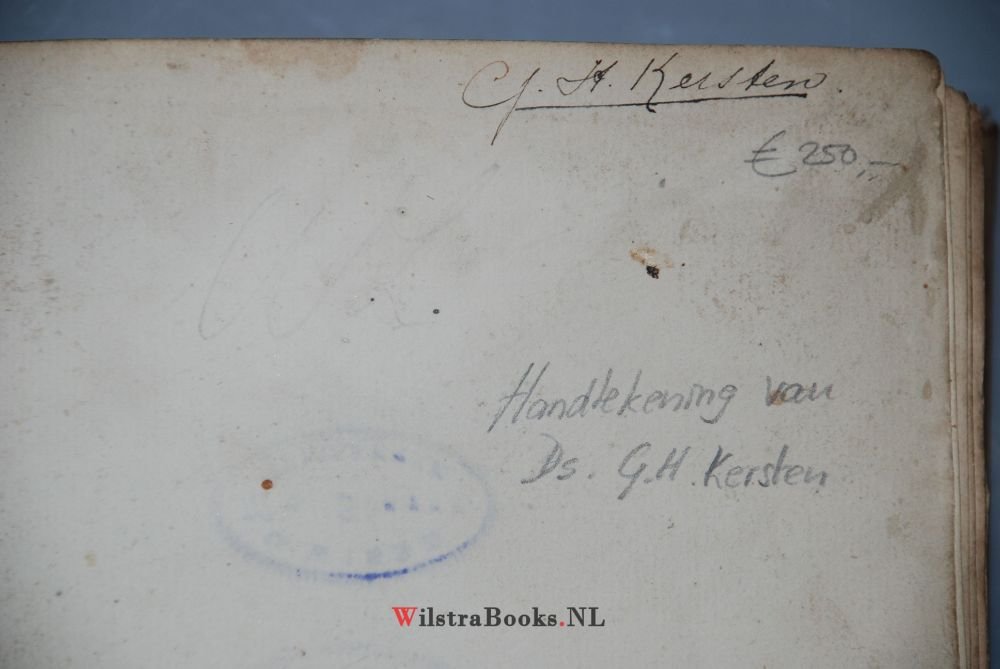 G. H. Kersten.
€ 250,-
Handtekening van
Ds. G.H. Kersten
WilstraBooks.NL